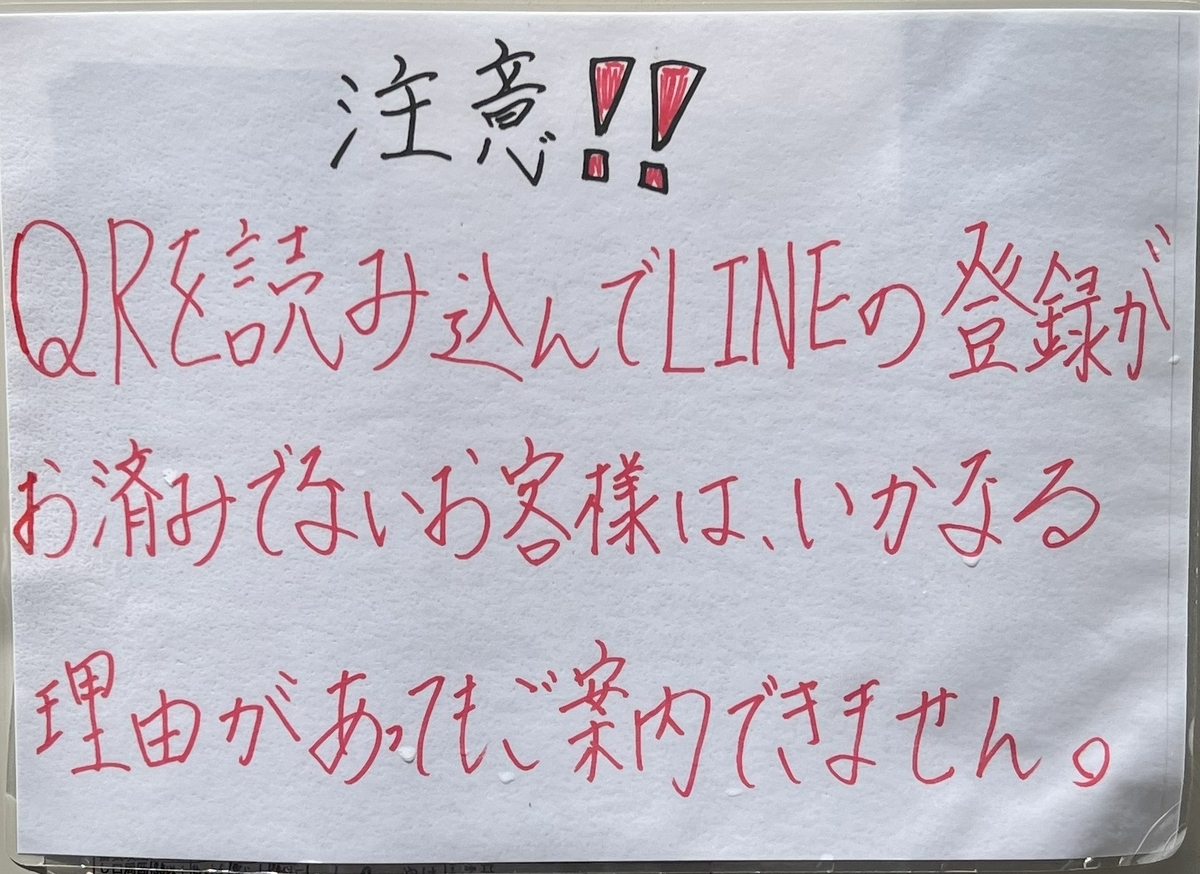 注意!!
QRを読み込んでLINEの登録が
お済みでないお客様は、いかなる
理由があっても、ご案内できません。